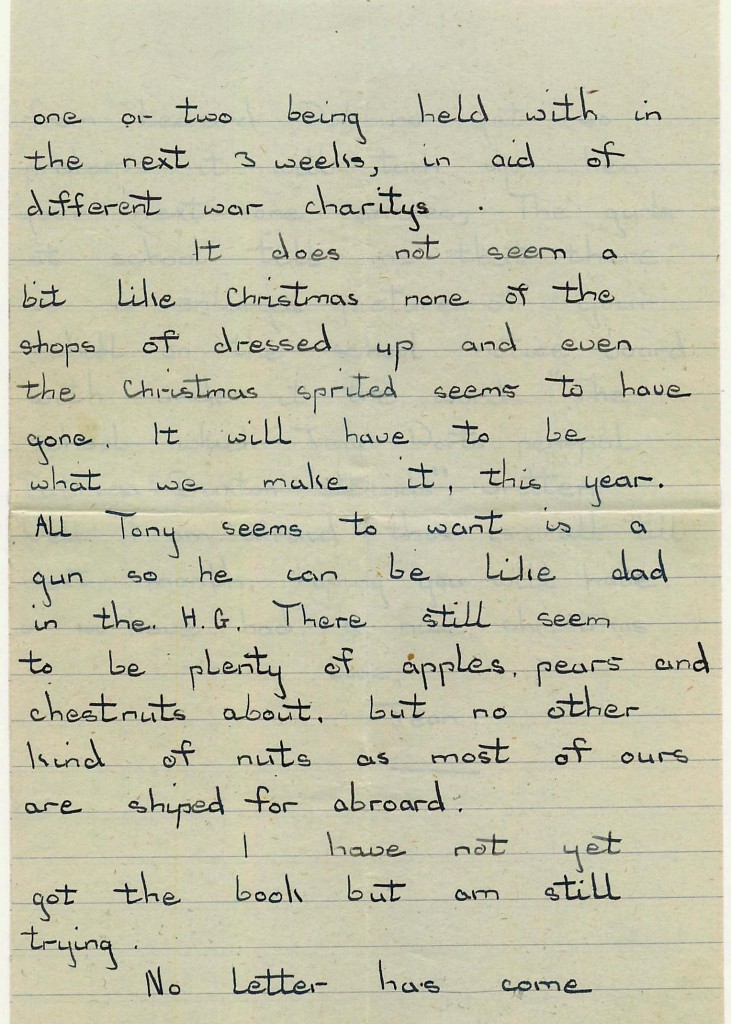 one or two being held with in
the next 3 weeks, in aid of
different war charitys .
It does not seem a
bit like Christmas none of the
shops of dressed up and even
the Christmas sprited seems to have
gone. It will have to be
what we make it, this year.
All Tony seems to want is a
gun so he can be like dad
in the. H.G. There still seem
to be plenty of apples, pears and
chestnuts about, but no other
kind of nuts as most of ours
are shiped for abroard.
I have not yet
got the book but am still
trying.
No letter has come